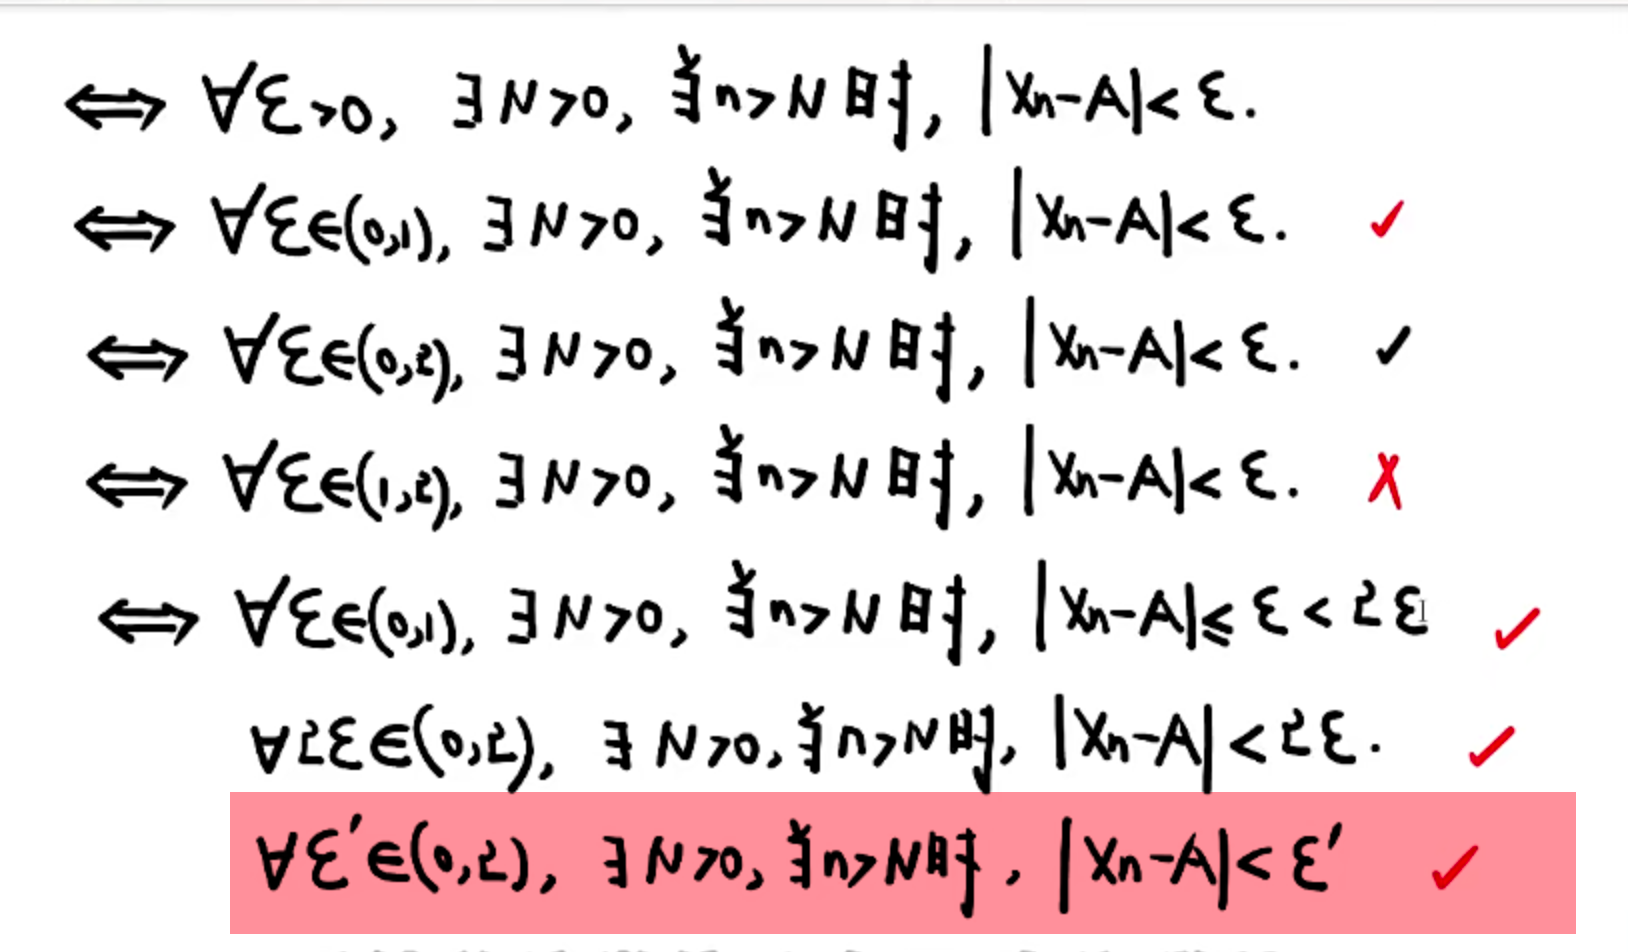 ⟺ ∀ε>0, ∃N>0, 当n>N时, |Xn-A|<ε.
⟺ ∀ε∈(0,1), ∃N>0, 当n>N时, |Xn-A|<ε. ✓
⟺ ∀ε∈(0,2), ∃N>0, 当n>N时, |Xn-A|<ε. ✓
⟺ ∀ε∈(1,2), ∃N>0, 当n>N时, |Xn-A|<ε. ✗
⟺ ∀ε∈(0,1), ∃N>0, 当n>N时, |Xn-A|≤ε<2ε ✓
∀2ε∈(0,2), ∃N>0, 当n>N时, |Xn-A|<2ε. ✓
∀ε'∈(0,2), ∃N>0, 当n>N时, |Xn-A|<ε' ✓